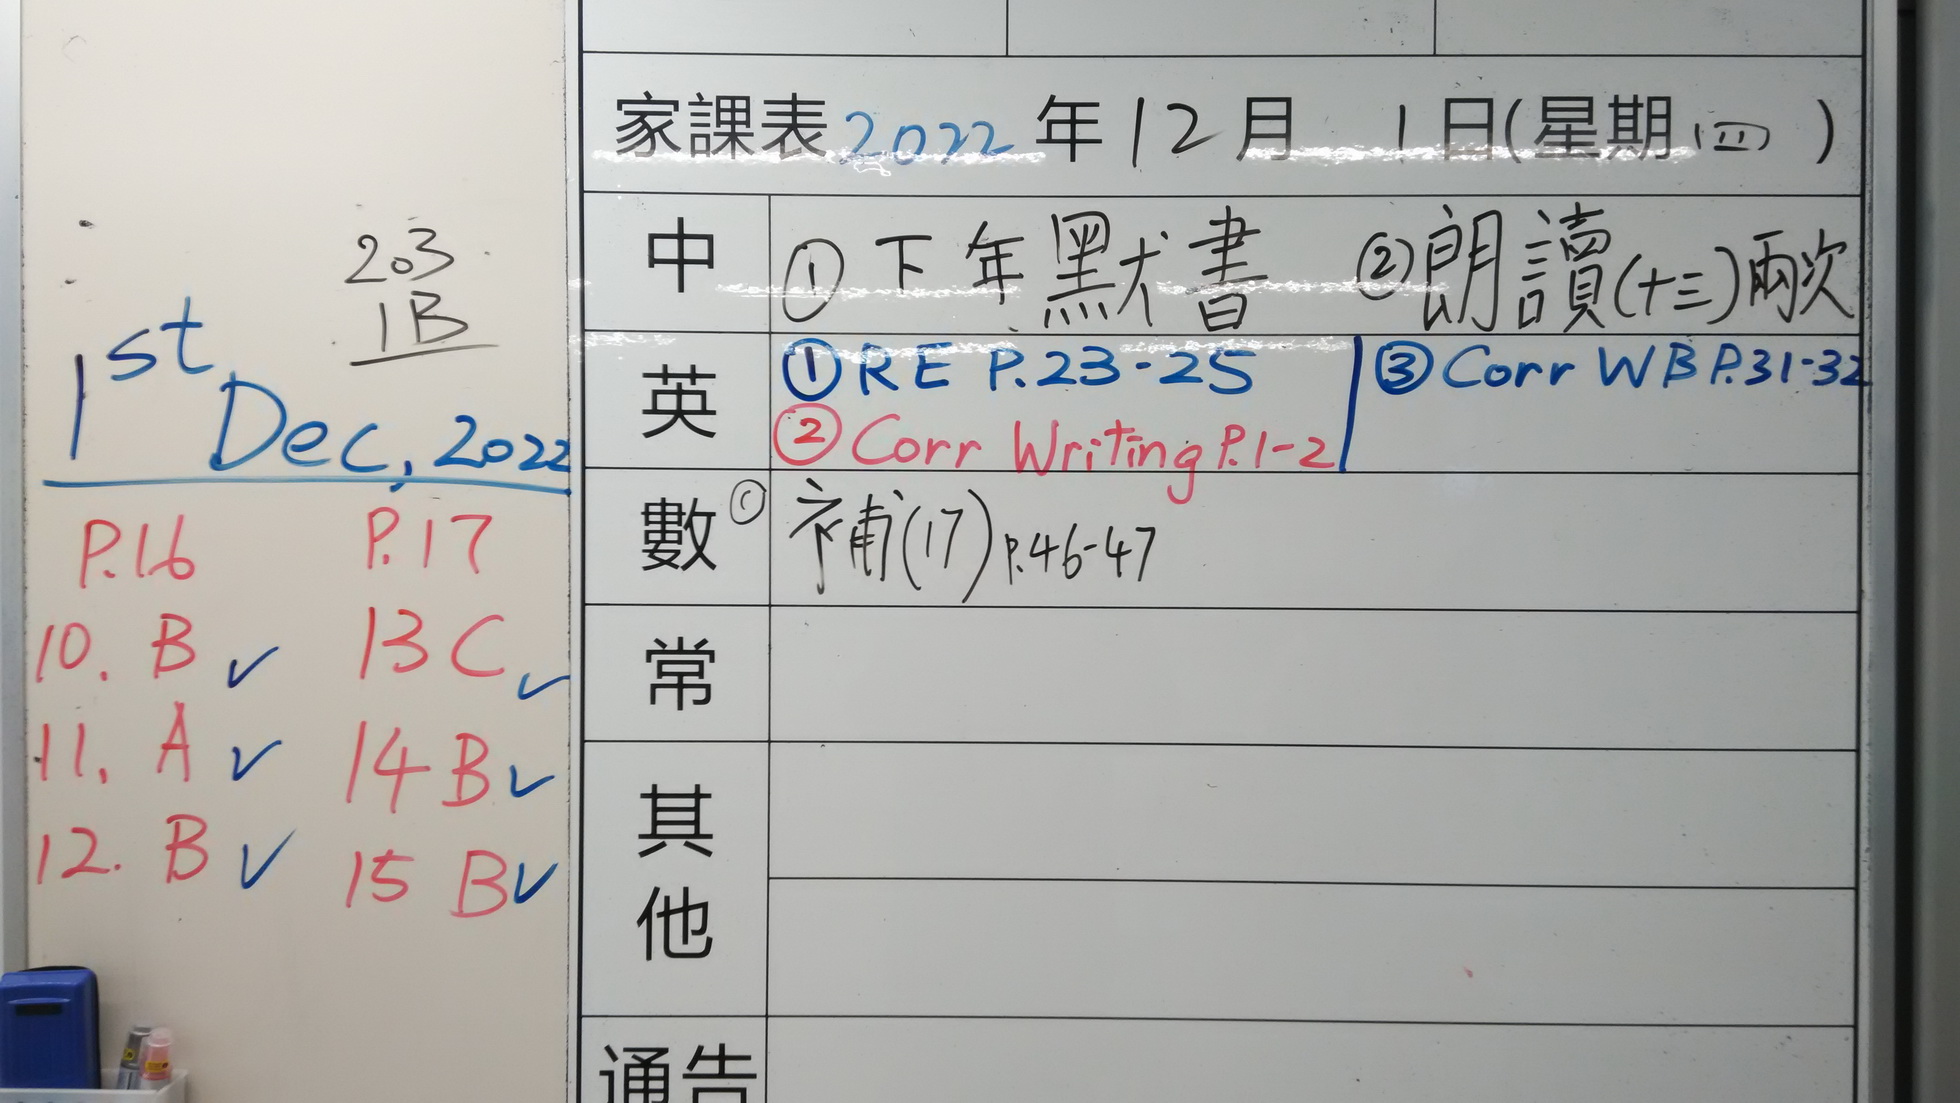 203
1B
1st Dec, 2022
P.16 P.17
10. B ✓ 13 C ✓
11. A ✓ 14 B ✓
12. B ✓ 15 B ✓
家課表 2022 年 12 月 1 日(星期 四 )
中 ① 下年默書 ② 朗讀(十三)兩次
英 ① RE P.23-25 ③ Corr WB P.31-32
② Corr Writing P.1-2
數 補(17) P.46-47
常
其他
通告